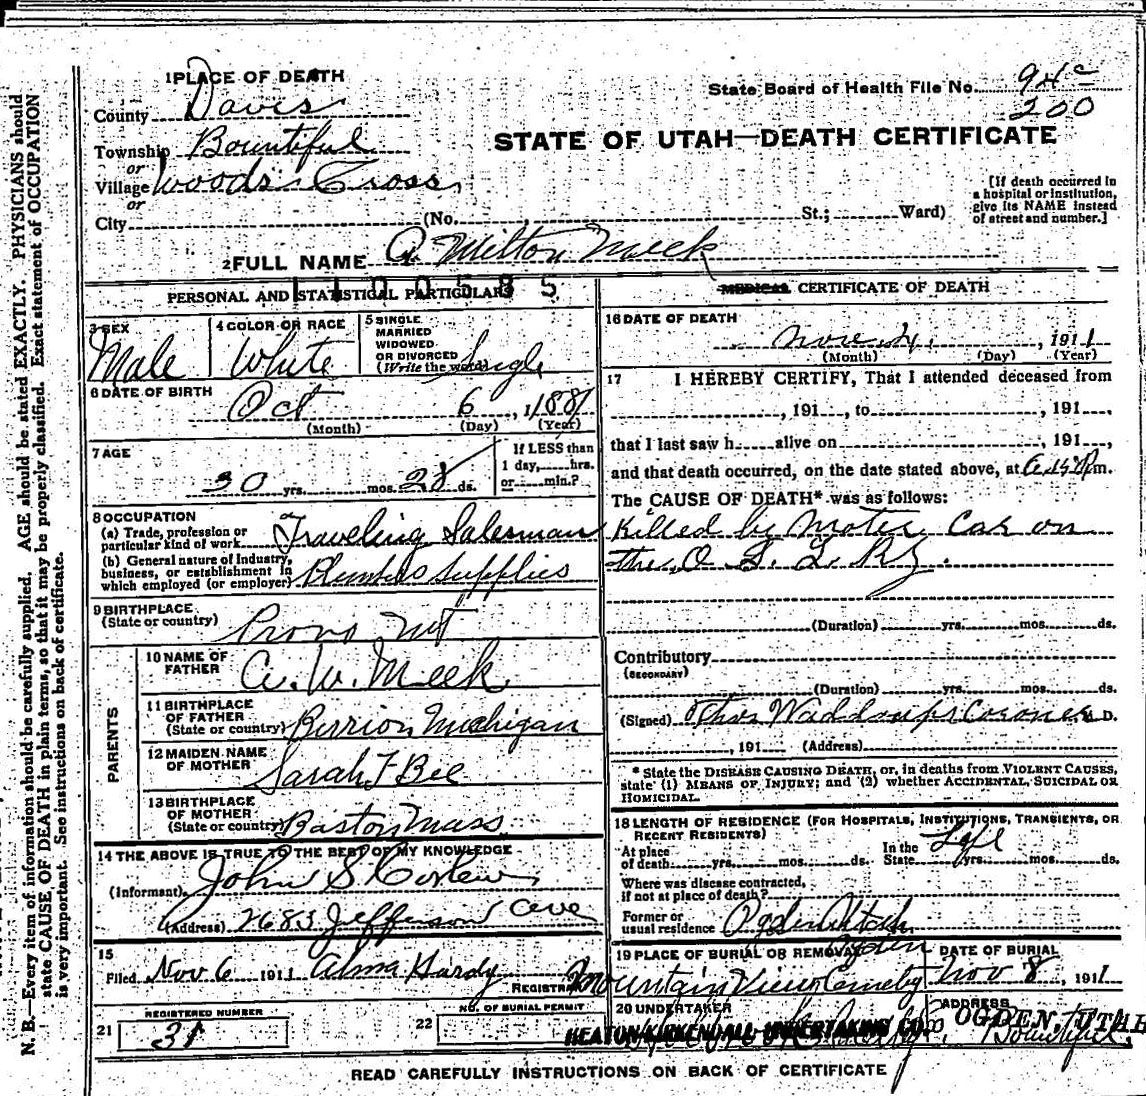 1 PLACE OF DEATH
State Board of Health File No. 94c
200
County Davis
STATE OF UTAH—DEATH CERTIFICATE
Township Bountiful
or
Village Woods Cross
or
[If death occurred in
a hospital or institution,
give its NAME instead
of street and number.]
City (No. St.; Ward)
2 FULL NAME A. Milton Meek
1100585
PERSONAL AND STATISTICAL PARTICULARS
3 SEX
Male
4 COLOR OR RACE
White
5 SINGLE
MARRIED
WIDOWED
OR DIVORCED
(Write the word) Single
6 DATE OF BIRTH
Oct 6, 1881
(Month) (Day) (Year)
7 AGE
30 yrs. mos. 28 ds.
If LESS than
1 day, hrs.
or min.?
8 OCCUPATION
(a) Trade, profession or
particular kind of work Traveling Salesman
(b) General nature of industry,
business, or establishment in
which employed (or employer) supplies
9 BIRTHPLACE
(State or country) Provo
PARENTS
10 NAME OF
FATHER A. W. Meek
11 BIRTHPLACE
OF FATHER
(State or country) Michigan
12 MAIDEN NAME
OF MOTHER Sarah F Bee
13 BIRTHPLACE
OF MOTHER
(State or country) Mass
14 THE ABOVE IS TRUE TO THE BEST OF MY KNOWLEDGE
(Informant) John S
(Address) 2683 Jefferson Ave
15
Filed Nov 6 1911 Alma Hardy
REGISTRAR
21
REGISTERED NUMBER
31
22
NO. OF BURIAL PERMIT
MEDICAL CERTIFICATE OF DEATH
16 DATE OF DEATH
Nov. 4, 1911
(Month) (Day) (Year)
17 I HEREBY CERTIFY, That I attended deceased from
, 191 , to , 191 ,
that I last saw h alive on , 191 ,
and that death occurred, on the date stated above, at m.
The CAUSE OF DEATH* was as follows:
Killed by Motor Car on
the O S. L. Ry.
(Duration) yrs. mos. ds.
Contributory
(SECONDARY)
(Duration) yrs. mos. ds.
(Signed) Waddoups Coroner M. D.
, 191 (Address)
* State the DISEASE CAUSING DEATH, or, in deaths from VIOLENT CAUSES,
state (1) MEANS OF INJURY; and (2) whether ACCIDENTAL, SUICIDAL OR
HOMICIDAL.
18 LENGTH OF RESIDENCE (FOR HOSPITALS, INSTITUTIONS, TRANSIENTS, OR
RECENT RESIDENTS)
At place
of death yrs. mos. ds.
In the
State Life yrs. mos. ds.
Where was disease contracted,
if not at place of death?
Former or
usual residence Ogden Utah
19 PLACE OF BURIAL OR REMOVAL
Ogden
Mountain View Cemetery
DATE OF BURIAL
Nov 8, 1911
20 UNDERTAKER
HEATON-KIRKENDALL UNDERTAKING CO.
ADDRESS
OGDEN, UTAH
Bountiful.
READ CAREFULLY INSTRUCTIONS ON BACK OF CERTIFICATE
N. B.—Every item of information should be carefully supplied. AGE should be stated EXACTLY. PHYSICIANS should
state CAUSE OF DEATH in plain terms, so that it may be properly classified. Exact statement of OCCUPATION
is very important. See instructions on back of certificate.